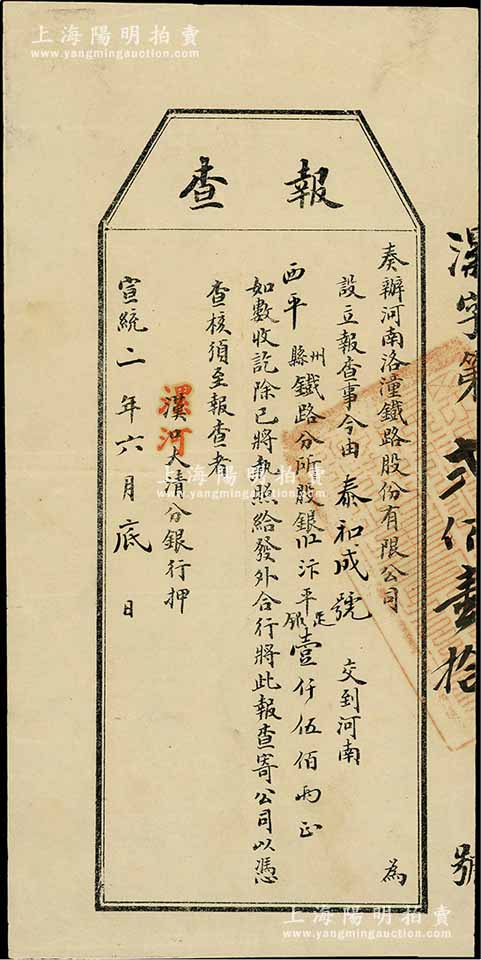 上海陽明拍賣
www.yangmingauction.com
漯字第貳佰壹拾號
報查
奏辦河南洛潼鐵路股份有限公司 為
設立報查事今由泰和成號 交到河南
西平州縣鐵路分所股銀汴平足銀壹仟伍佰兩正
如數收訖除已將執照給發外合行將此報查寄公司以憑
查核須至報查者
漯河
漢口大清分銀行押
宣統二年六月底日
上海陽明拍賣
www.yangmingauction.com
上海陽明拍賣
www.yangmingauction.com